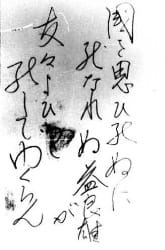 国を思ひ死ぬに
死なれぬ益良雄が
友々よひつ
死してゆくらん